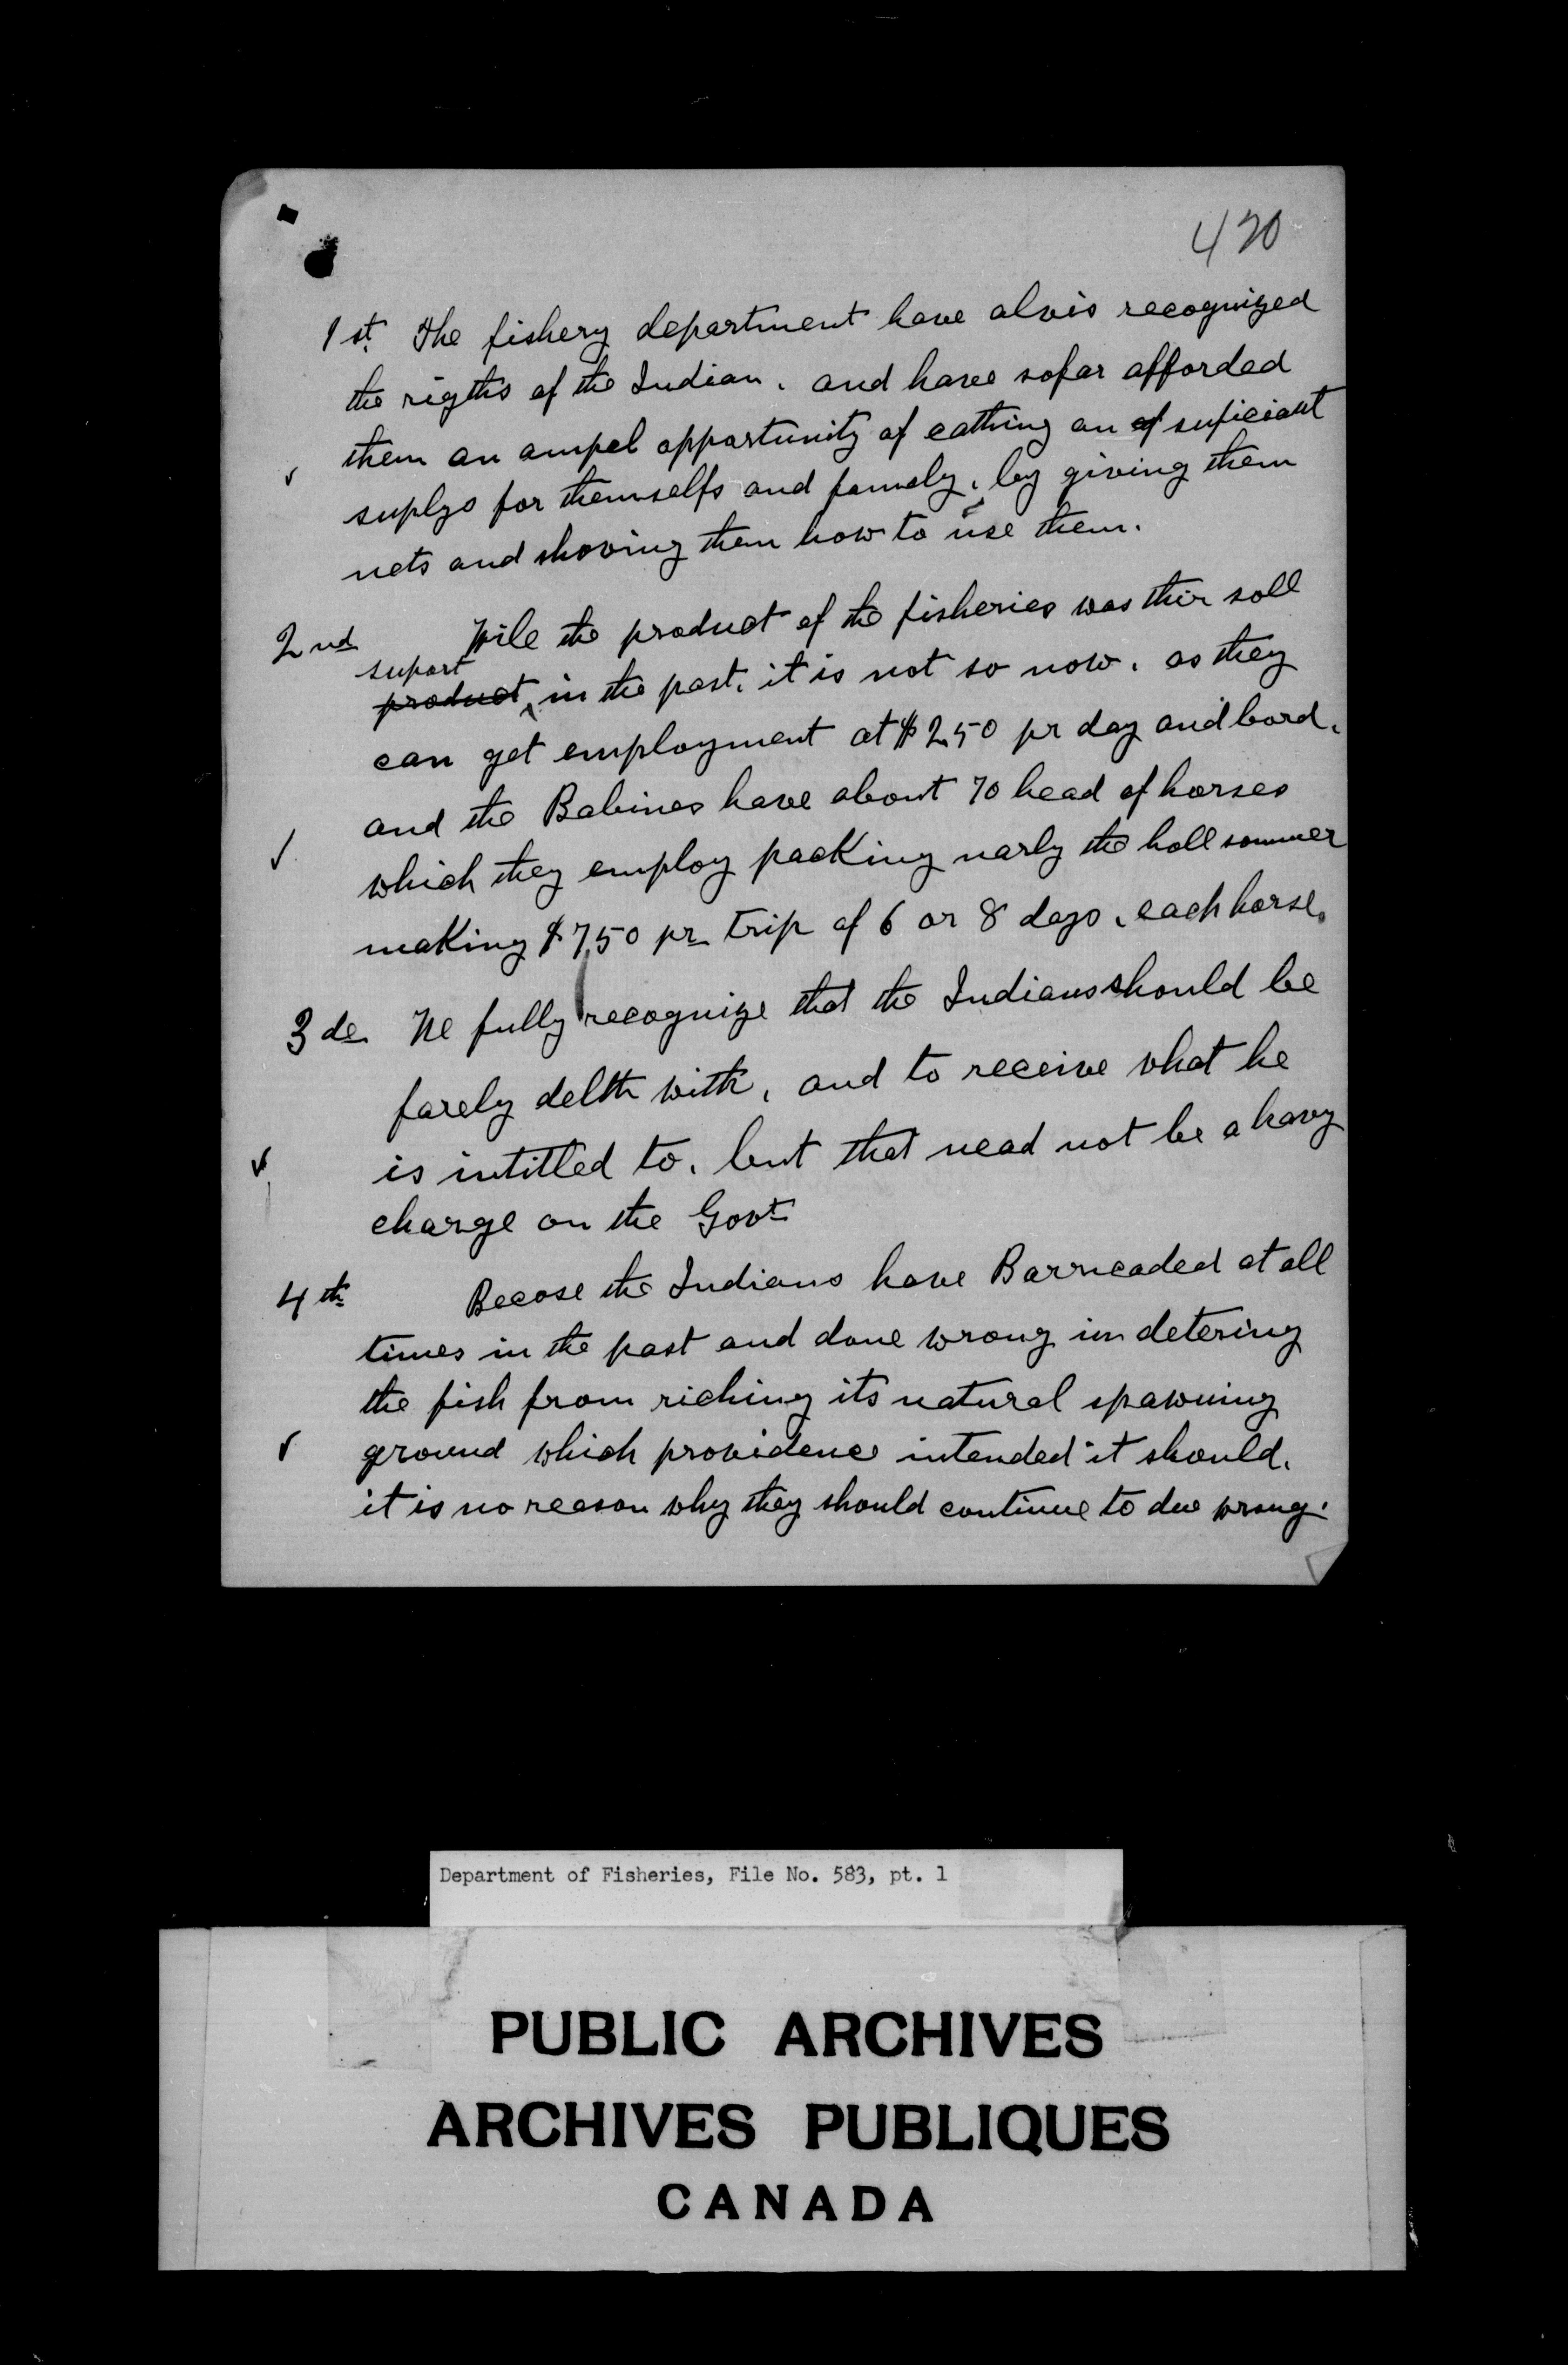 420
1st. The fishery department have alvis recognized
the rigths of the Indian. and have sofar afforded
them an ampel opportunity of cathing an of suficiant
suplys for themselfs and famely, by giving them
nets and shoving them how to use them.
2nd Wile the product of the fisheries was thir soll
suport
product, in the past. it is not so now. as they
can get employment at $2,50 pr day and bord.
and the Babines have about 70 head of horses
which they employ packing narly the holl sommer
making $7,50 pr trip of 6 or 8 days, each horse.
3de We fully recognize that the Indians should be
farely delth with, and to receive what he
is intitled to. but that nead not be a havy
charge on the Govt
4th Becose the Indians have Barricaded at all
times in the past and done wrong in detering
the fish from riching its natural spawning
ground which providence intended it should.
it is no reason why they should continue to due wrong.
Department of Fisheries, File No. 583, pt. 1
PUBLIC ARCHIVES
ARCHIVES PUBLIQUES
CANADA